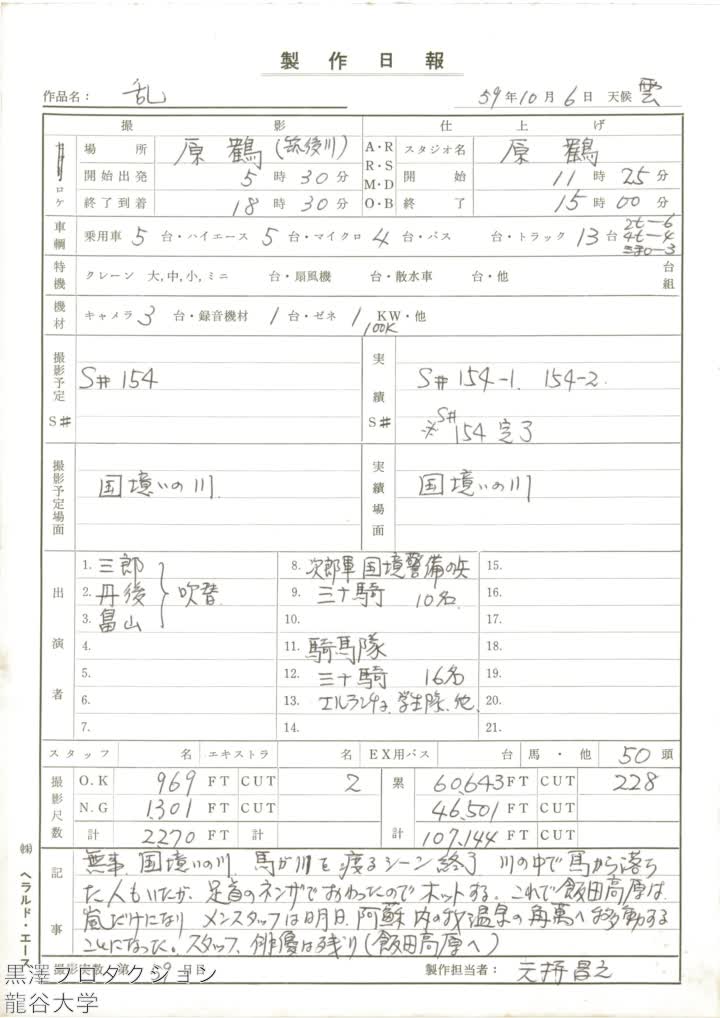 製作日報
作品名： 乱 59年10月6日 天候 雲
撮影 仕上げ
ロケ 場所 原鶴(筑後川) A・R R・S M・D O・B スタジオ名 原鶴
開始出発 5時30分 開始 11時25分
終了到着 18時30分 終了 15時00分
車輌 乗用車 5 台・ハイエース 5 台・マイクロ 4 台・バス 台・トラック 13 台 2t-6 4t-4
特機 クレーン 大,中,小,ミニ 台・扇風機 台・散水車 台・他 台組
機材 キャメラ 3 台・録音機材 1 台・ゼネ 1 KW・他
100K
撮影予定 S# S#154 実績 S# S#154-1. 154-2.
※S#154完了
撮影予定場面 国境いの川 実績場面 国境いの川
出演者
1. 三郎 8. 次郎軍国境警備の兵 15.
2. 丹後 吹替 9. 三十騎 10名 16.
3. 畠山 10. 17.
4. 11. 騎馬隊 18.
5. 12. 三十騎 16名 19.
6. 13. エルランチョ、学生隊、他 20.
7. 14. 21.
スタッフ 名 エキストラ 名 EX用バス 台 馬・他 50頭
撮影尺数 O.K 969 FT CUT 2 累計 60,643 FT CUT 228
N.G 1,301 FT CUT 46,501 FT CUT
計 2270 FT 計 107,144 FT CUT
記事 無事、国境いの川、馬が川を渡るシーン終了 川の中で馬から落ち
た人もいたが、足首のネンザでおわったのでホットする。これで飯田高原は
嵐だけになり メンスタッフは明日、阿蘇内の牧温泉の角萬へ移動する
ことになった。スタッフ、俳優は残り(飯田高原へ)
撮影実数 第 59 日目 製作担当者： 元持昌之
㈱ヘラルド・エース
黒澤プロダクション
龍谷大学